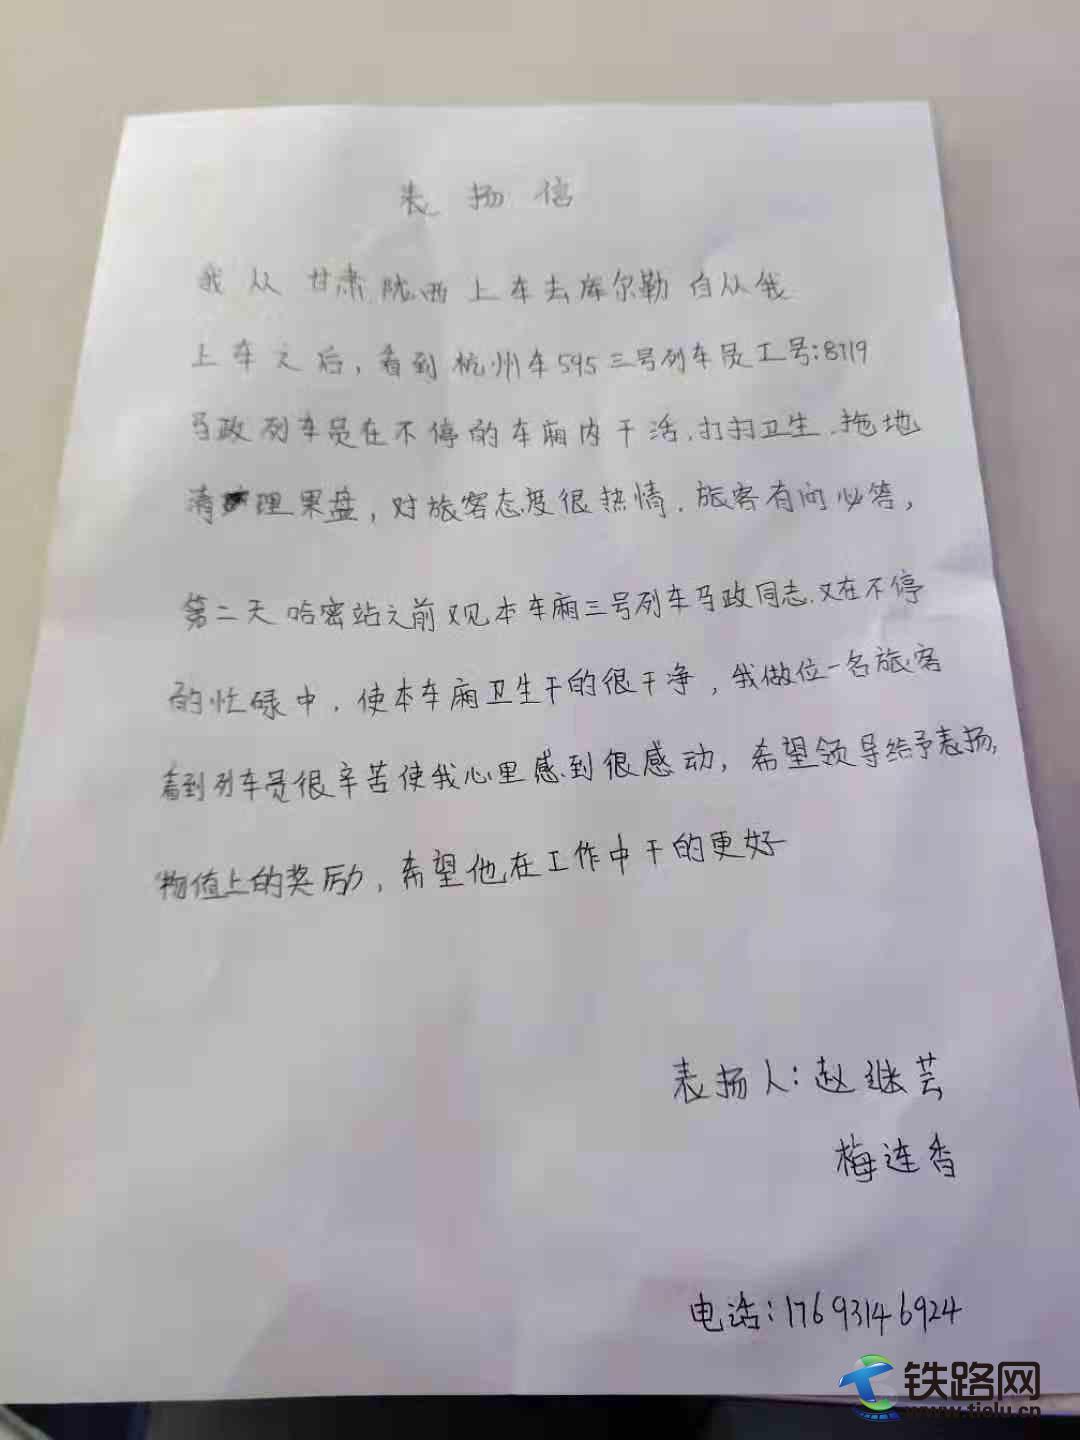 表扬信
我从甘肃陇西上车去库尔勒自从我
上车之后,看到杭州车595三号列车员工号:8119
马政列车员在不停的车厢内干活.打扫卫生.拖地
清理果盘,对旅客态度很热情.旅客有问必答,
第二天哈密站之前又见本车厢三号列车马政同志.又在不停
的忙碌中,使本车厢卫生干的很干净,我做位一名旅客
看到列车员很辛苦使我心里感到很感动,希望领导给予表扬,
物值上的奖励,希望他在工作中干的更好
表扬人:赵继芸
梅连香
电话:17693146924
铁路网
www.tielu.cn